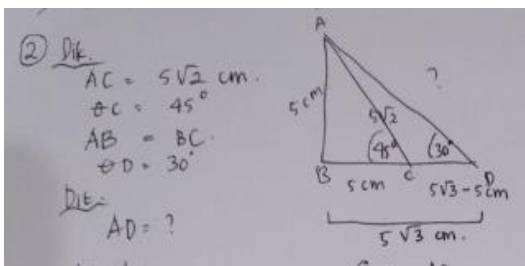 2 Dik.
AC = 5√2 cm.
θC = 45°
AB = BC.
θD = 30°
Dit:
AD = ?
A
?
5 cm
5√2
45°
30°
B
C
D
5 cm
5√3 - 5 cm
5√3 cm.